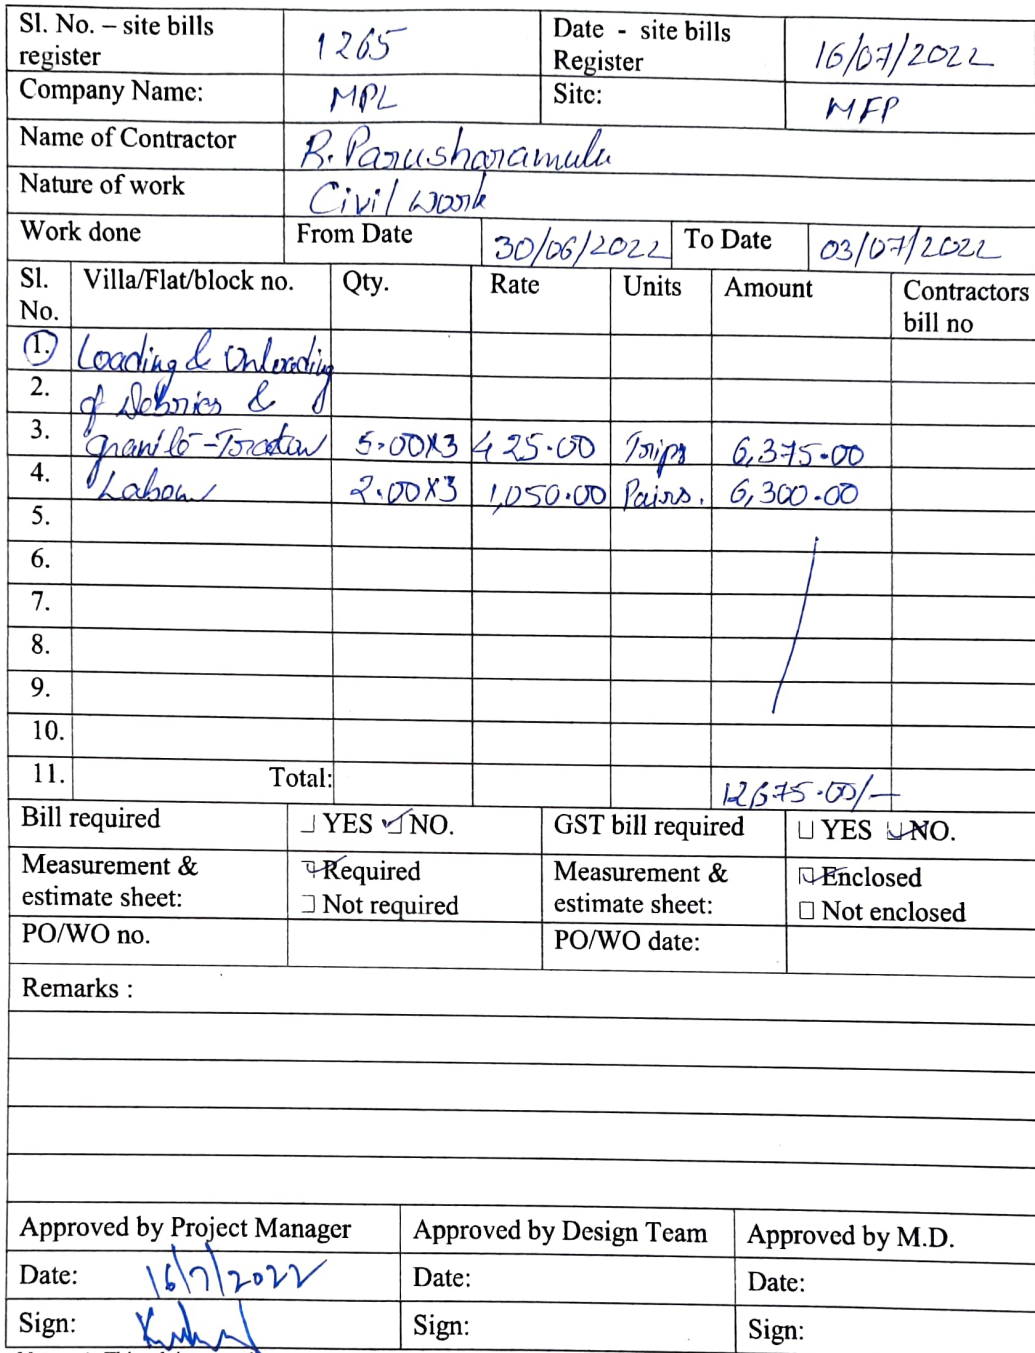 Sl. No. – site bills register 1265 Date - site bills Register 16/07/2022
Company Name: MPL Site: MFP
Name of Contractor R. Parusharamulu
Nature of work Civil Work
Work done From Date 30/06/2022 To Date 03/07/2022
Sl. No. Villa/Flat/block no. Qty. Rate Units Amount Contractors bill no
1. Loading & Unloading
2. of Debries &
3. granite - Tractor 5.00X3 425.00 Trips 6,375.00
4. Labour 2.00X3 1,050.00 Pairs. 6,300.00
5.
6.
7.
8.
9.
10.
11. Total: 12675.00/-
Bill required YES NO. GST bill required YES NO.
Measurement & estimate sheet: Required Not required Measurement & estimate sheet: Enclosed Not enclosed
PO/WO no. PO/WO date:
Remarks :
Approved by Project Manager Approved by Design Team Approved by M.D.
Date: 16/7/2022 Date: Date:
Sign: Sign: Sign: